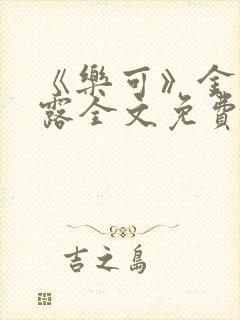 《樂可》金
露全文免費
吉之島